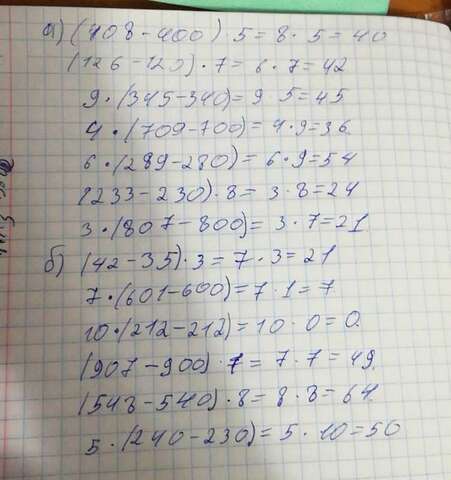 а) (408-400)·5=8·5=40
(126-120)·7=6·7=42
9·(345-340)=9 5=45
4·(709-700)=4·9=36
6·(289-280)=6·9=54
(233-230)·8=3·8=24
3·(807-800)=3·7=21
б) (42-35)·3=7·3=21
7·(601-600)=7·1=7
10·(212-212)=10·0=0
(907-900)·7=7·7=49
(548-540)·8=8·8=64
5·(240-230)=5·10=50